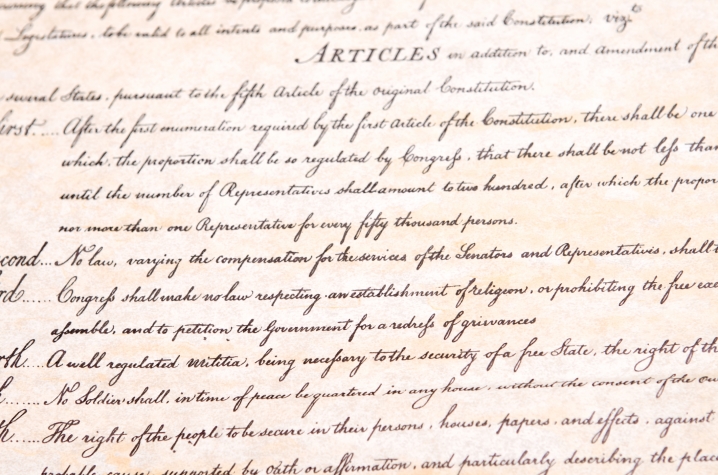 the following Articles
Legislatures, to be valid to all intents and purposes, as part of the said Constitution, viz.
ARTICLES in addition to, and amendment of
several States, pursuant to the fifth Article of the original Constitution.
After the first enumeration required by the first Article of the Constitution, there shall be one
which, the proportion shall be so regulated by Congress, that there shall be not less than
until the number of Representatives shall amount to two hundred, after which the propor
nor more than one Representative for every fifty thousand persons.
cond... No law, varying the compensation for the services of the Senators and Representatives, shall
rd...... Congress shall make no law respecting an establishment of religion, or prohibiting the free
assemble, and to petition the Government for a redress of grievances
rth.... A well regulated militia, being necessary to the security of a free State, the right of the
h...... No Soldier shall, in time of peace be quartered in any house, without the consent of the
th..... The right of the people to be secure in their persons, houses, papers, and effects, against
probable cause, supported by Oath or affirmation, and particularly describing the place